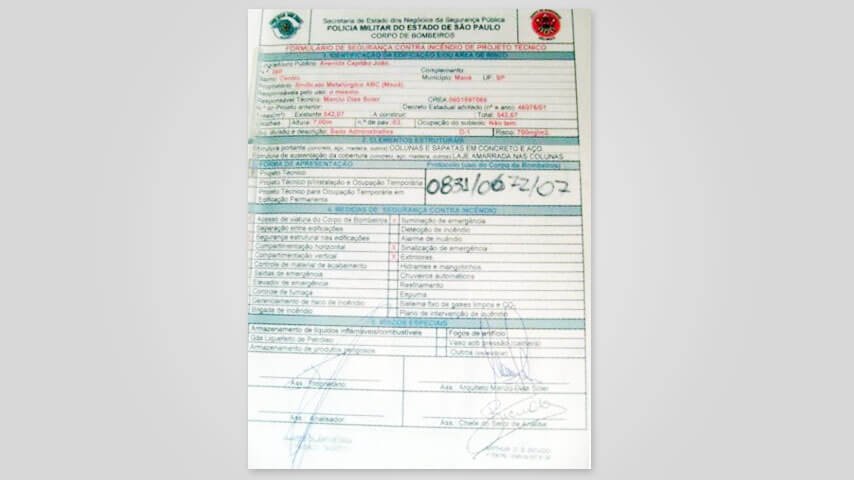 Secretaria de Estado dos Negócios da Segurança Pública
POLÍCIA MILITAR DO ESTADO DE SÃO PAULO
CORPO DE BOMBEIROS
FORMULÁRIO DE SEGURANÇA CONTRA INCÊNDIO DE PROJETO TÉCNICO
1. IDENTIFICAÇÃO DA EDIFICAÇÃO E/OU ÁREA DE RISCO
Logradouro Público: Avenida Capitão João
N.º Complemento
Bairro: Centro Município: Mauá UF: SP
Proprietário: Sindicado Metalúrgico ABC (Mauá)
Responsável pelo uso: o mesmo
Responsável Técnico: Marcio Dias Soler CREA:
N.º do Projeto anterior: Decreto Estadual adotado (nº e ano) 46076/01
Existente 542,67 A construir: Total: 542,67
Altura: 7,00m n.º de pav.:03. Ocupação do subsolo: Não tem
divisão e descrição: Sede Administrativa D-1 Risco: 700mj/m2
2. ELEMENTOS ESTRUTURAIS
Estrutura portante (concreto, aço, madeira, outros) COLUNAS E SAPATAS EM CONCRETO E AÇO
Estrutura de sustentação da cobertura (concreto, aço, madeira, outros) LAJE AMARRADA NAS COLUNAS
FORMA DE APRESENTAÇÃO Protocolo (uso do Corpo de Bombeiros)
Projeto Técnico
0831/0672/07
Projeto Técnico p/Instalação e Ocupação Temporária
Projeto Técnico para Ocupação Temporária em
Edificação Permanente
4. MEDIDAS DE SEGURANÇA CONTRA INCÊNDIO
Acesso de viatura do Corpo de Bombeiros Iluminação de emergência
Separação entre edificações Detecção de incêndio
Segurança estrutural nas edificações Alarme de incêndio
Compartimentação horizontal X Sinalização de emergência
Compartimentação vertical X Extintores
Controle de material de acabamento Hidrantes e mangotinhos
Saídas de emergência Chuveiros automáticos
Elevador de emergência Resfriamento
Controle de fumaça Espuma
Gerenciamento de risco de incêndio Sistema fixo de gases limpos e CO2
Brigada de incêndio Plano de intervenção de incêndio
5. RISCOS ESPECIAIS
Armazenamento de líquidos inflamáveis/combustíveis Fogos de artifício
Gás Liquefeito de Petróleo Vaso sob pressão (caldeira)
Armazenamento de produtos perigosos Outros (especificar)
Ass.: Proprietário Ass.: Arquiteto Marcio Dias Soler
Ass.: Analisador Ass.: Chefe do Setor de Análise